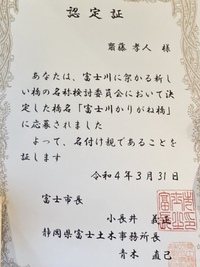 認定証
齋藤孝人 様
あなたは、富士川に架かる新し
い橋の名称検討委員会において決
定した橋名「富士川かりがね橋」
に応募されました
よって、名付け親であることを
証します
令和4年3月31日
富士市長
小長井 義正
静岡県富士土木事務所長
青木 直己